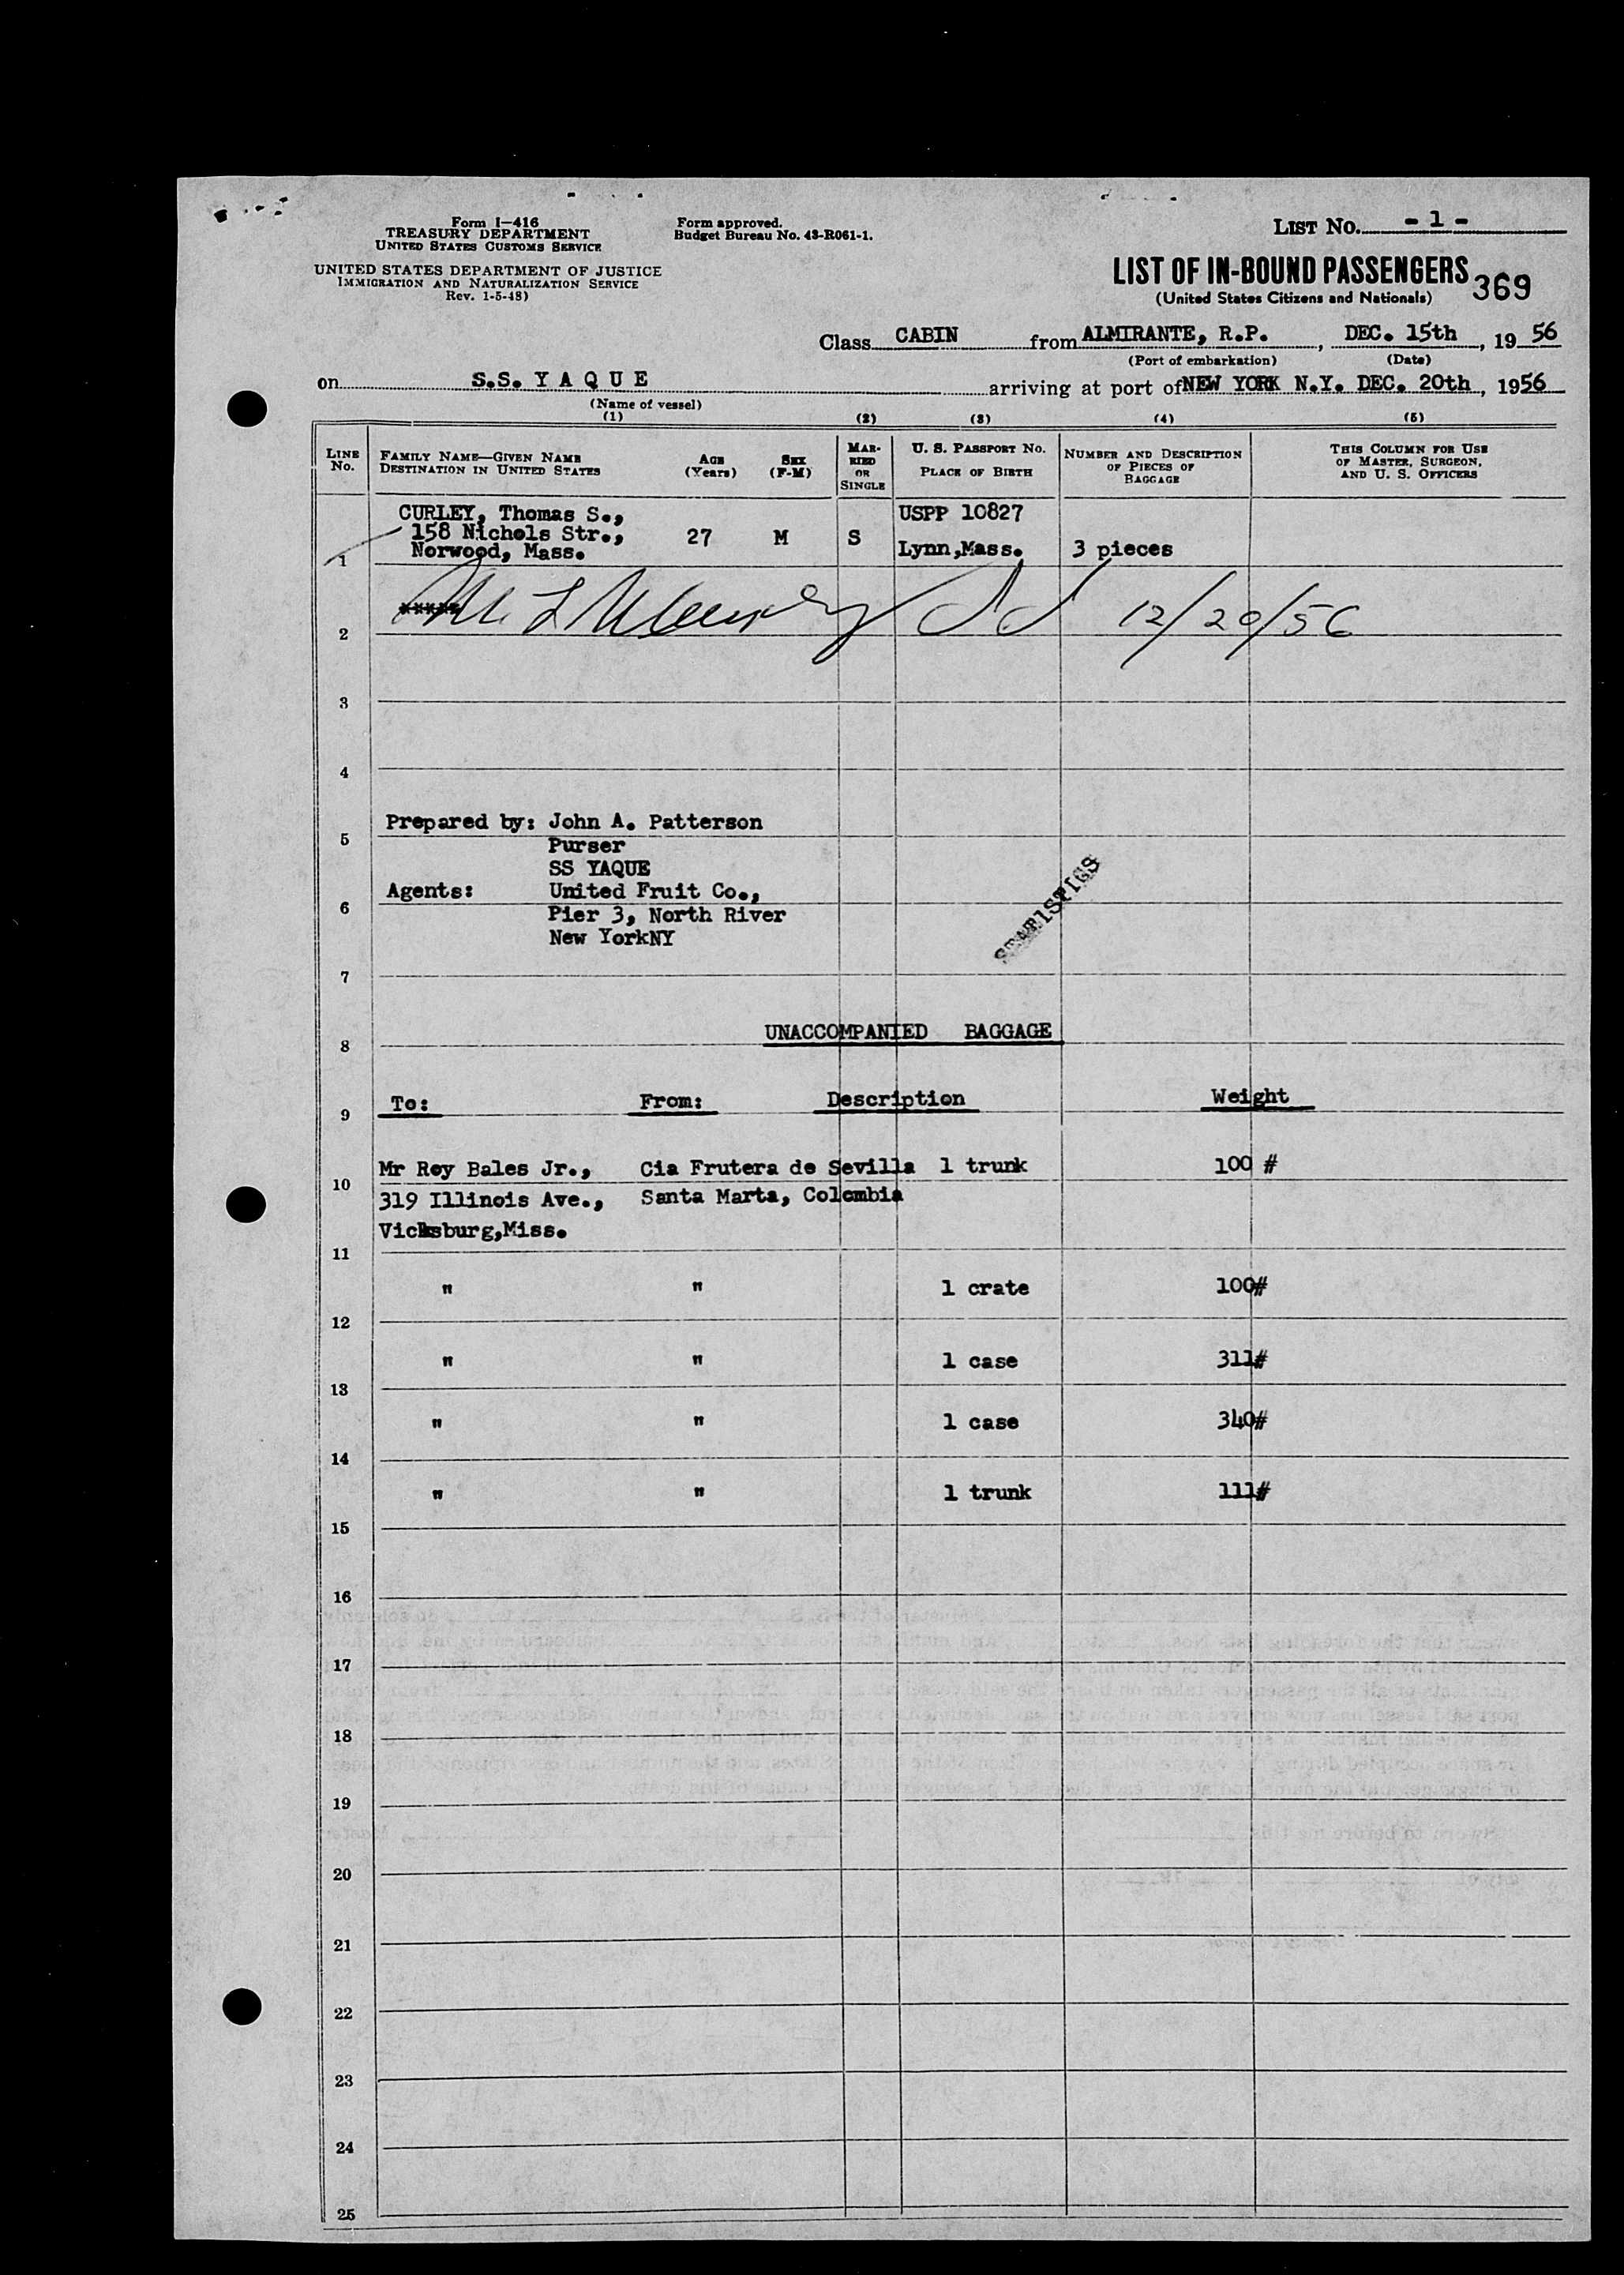 Form I—416
TREASURY DEPARTMENT
UNITED STATES CUSTOMS SERVICE
UNITED STATES DEPARTMENT OF JUSTICE
IMMIGRATION AND NATURALIZATION SERVICE
Rev. 1-5-48)
Form approved.
Budget Bureau No. 43-R061-1.
LIST NO. - 1 -
LIST OF IN-BOUND PASSENGERS 369
(United States Citizens and Nationals)
Class CABIN from ALMIRANTE, R.P. , DEC. 15th , 19 56
(Port of embarkation) (Date)
on S.S. Y A Q U E arriving at port of NEW YORK N.Y. DEC. 20th , 1956
(Name of vessel)
(1) (2) (3) (4) (5)
LINE NO.
FAMILY NAME—GIVEN NAME
DESTINATION IN UNITED STATES
AGE
(Years)
SEX
(F-M)
MAR-
RIED
OR
SINGLE
U. S. PASSPORT NO.
PLACE OF BIRTH
NUMBER AND DESCRIPTION
OF PIECES OF
BAGGAGE
THIS COLUMN FOR USE
OF MASTER, SURGEON,
AND U. S. OFFICERS
CURLEY, Thomas S., USPP 10827
158 Nichols Str., 27 M S
Norwood, Mass. Lynn,Mass. 3 pieces
1
12/20/56
2
3
4
Prepared by: John A. Patterson
5
Purser
SS YAQUE
Agents: United Fruit Co.,
6
Pier 3, North River
New YorkNY
7
UNACCOMPANIED BAGGAGE
8
To: From: Description Weight
9
Mr Roy Bales Jr., Cia Frutera de Sevilla 1 trunk 100 #
10
319 Illinois Ave., Santa Marta, Colombia
Vicksburg,Miss.
11
" " 1 crate 100#
12
" " 1 case 311#
13
" " 1 case 340#
14
" " 1 trunk 111#
15
16
17
18
19
20
21
22
23
24
25